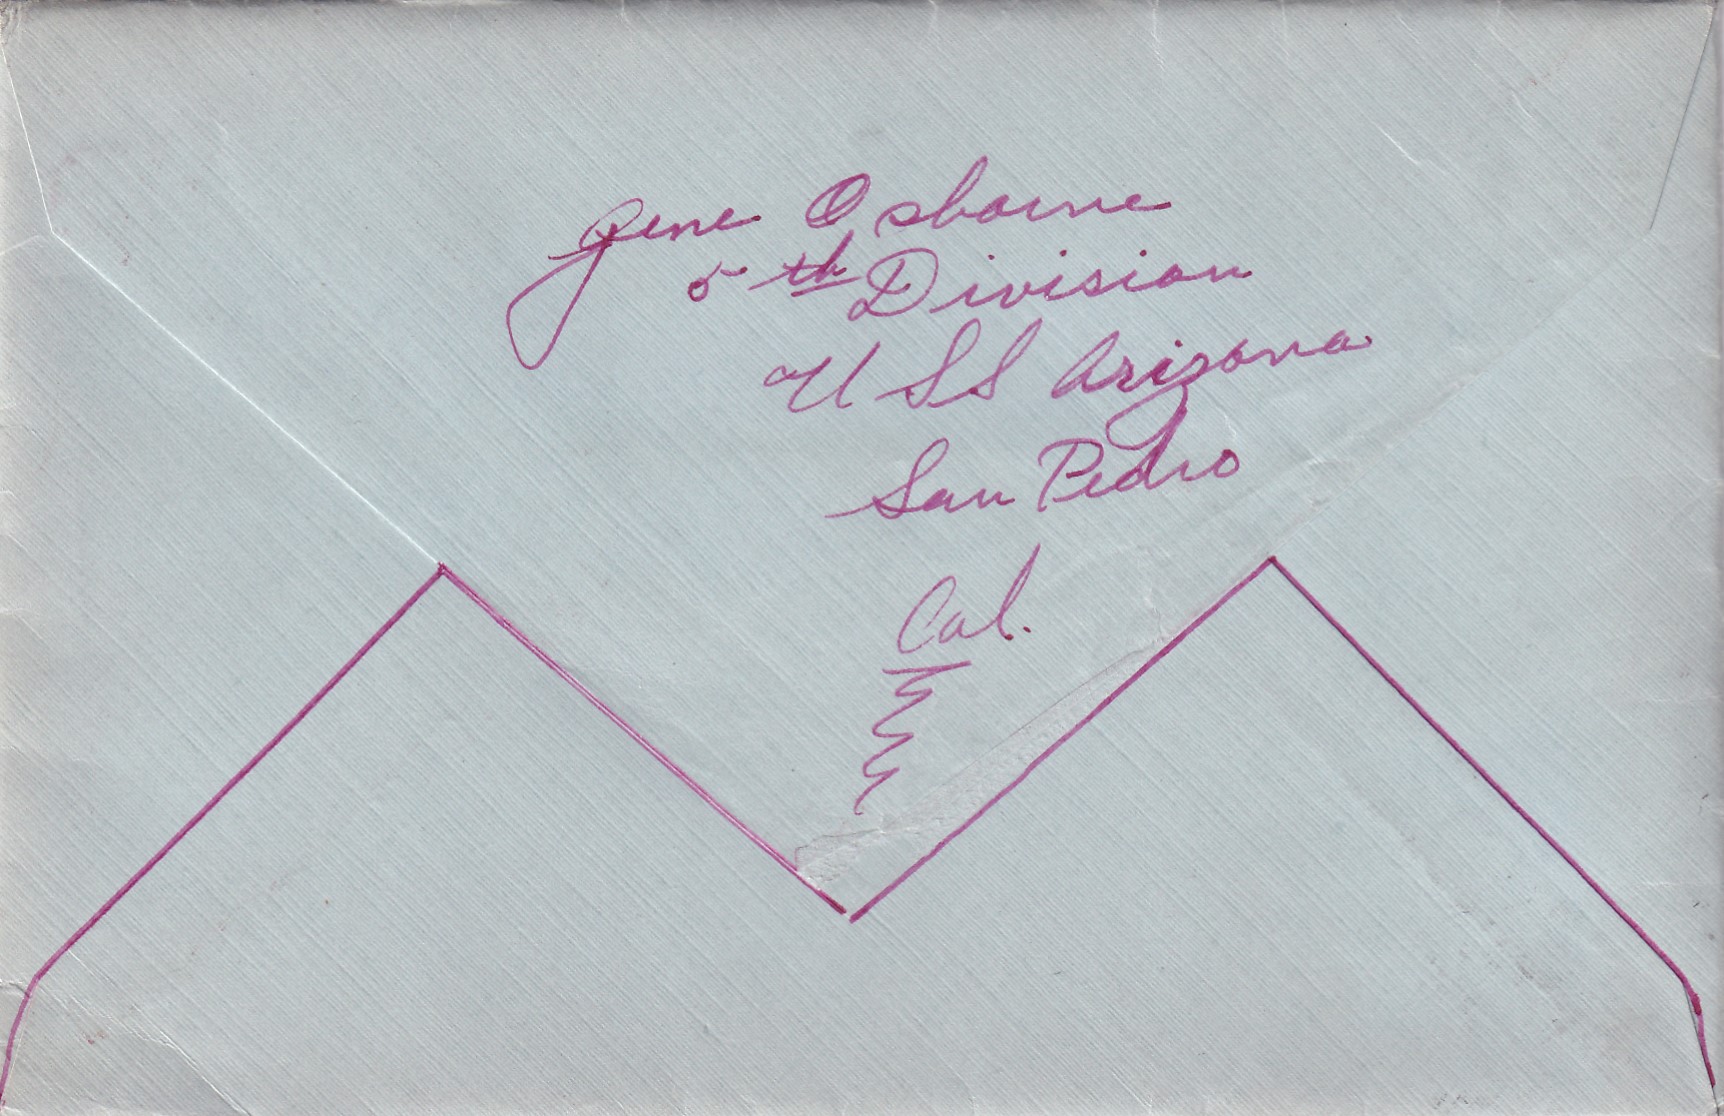 Gene Osborne
5th Division
USS Arizona
San Pedro
Cal.